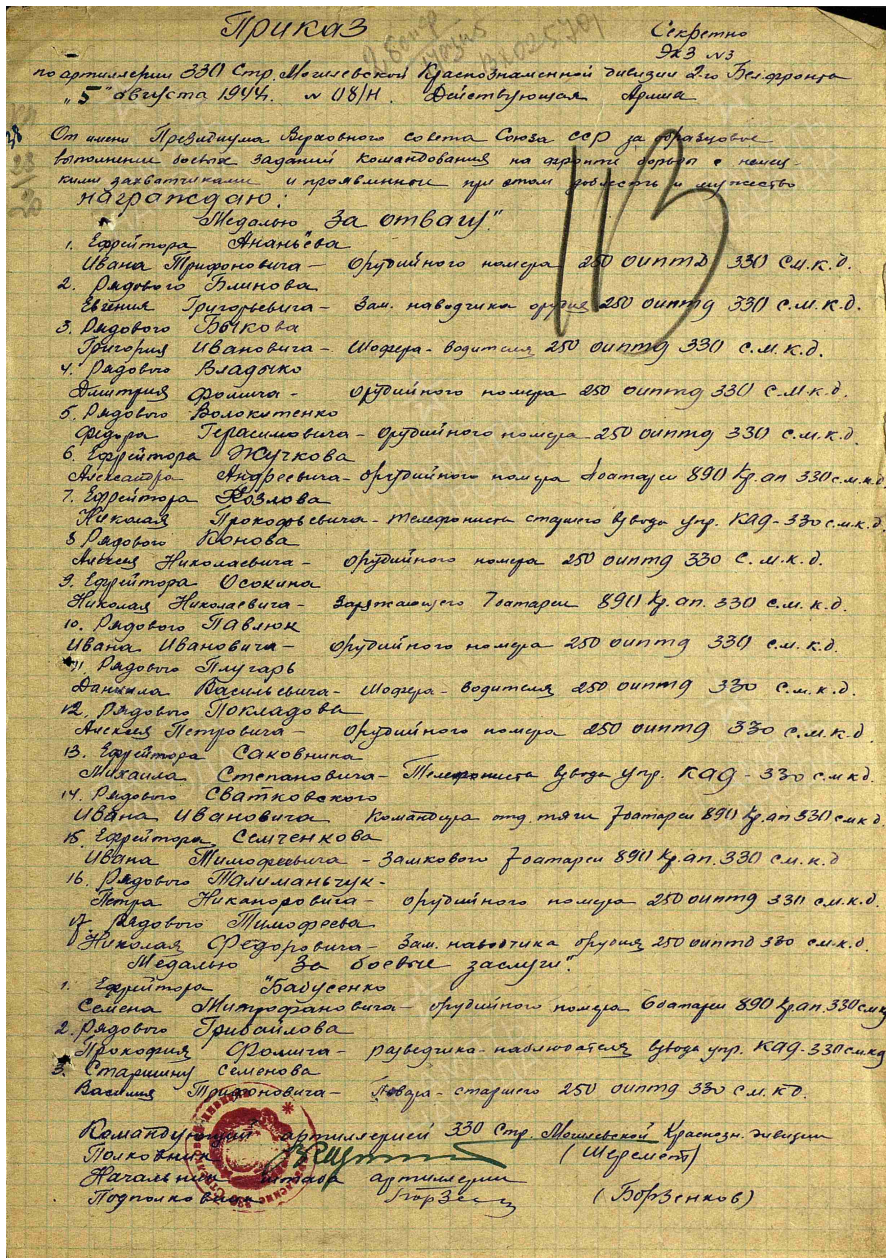 Приказ
Секретно
Экз №3
по артиллерии 330 Стр. Могилевской Краснознаменной дивизии 2-го Бел.фронта
"5" августа 1944г. № 08/Н. Действующая Армия
От имени Президиума Верховного совета Союза ССР за образцовое
выполнении боевых заданий командования на фронте борьбы с немец-
кими захватчиками и проявленной при этом доблесть и мужество
награждаю:
Медалью "За отвагу".
113
1. Ефрейтора Ананьева
Ивана Трифоновича - орудийного номера 250 оиптд 330 с.м.к.д.
2. Рядового Блинова
Евгения Григорьевича - Зам. наводчика орудия 250 оиптд 330 с.м.к.д.
3. Рядового Бычкова
Григория Ивановича - Шофера - водителя 250 оиптд 330 с.м.к.д.
4. Рядового Владыко
Дмитрия Фомича - орудийного номера 250 оиптд 330 с.м.к.д.
5. Рядового Волокитенко
Федора Герасимовича - орудийного номера 250 оиптд 330 с.м.к.д.
6. Ефрейтора Жучкова
Александра Андреевича - орудийного номера батареи 890 кр.ап 330 с.м.к.д.
7. Ефрейтора Козлова
Николая Прокофьевича - телефониста старшего взвода упр. КАД - 330 с.м.к.д.
8 Рядового Конова
Алексея Николаевича - орудийного номера 250 оиптд 330 с.м.к.д.
9. Ефрейтора Осокина
Николая Николаевича - Заряжающего 7 батареи 890 кр.ап. 330 с.м.к.д.
10. Рядового Павлюк
Ивана Ивановича - орудийного номера 250 оиптд 330 с.м.к.д.
11. Рядового Плугарь
Даниила Васильевича - Шофера - водителя 250 оиптд 330 с.м.к.д.
12. Рядового Покладова
Алексея Петровича - орудийного номера 250 оиптд 330 с.м.к.д.
13. Ефрейтора Саковника
Михаила Степановича - Телефониста взвода упр. КАД - 330 с.м.к.д.
14. Рядового Сватковского
Ивана Ивановича Командира отд. тяги 7 батареи 890 кр.ап 330 с.м.к.д.
15. Ефрейтора Семченкова
Ивана Тимофеевича - Замкового 7 батареи 890 кр.ап. 330 с.м.к.д
16. Рядового Талиманьчук -
Петра Никаноровича - орудийного номера 250 оиптд 330 с.м.к.д.
17. Рядового Тимофеева
Николая Федоровича - Зам. наводчика орудия 250 оиптд 330 с.м.к.д.
Медалью "За боевые заслуги".
1. Ефрейтора Бабусенко
Семена Митрофановича - орудийного номера 6 батареи 890 кр.ап. 330 с.м.к.д
2. Рядового Грибайлова
Прокофия Фомича - разведчика - наблюдателя взвода упр. КАД - 330 с.м.к.д
3. Старшину Семенова
Василия Трифоновича - Повара - старшего 250 оиптд 330 с.м.к.д.
Командующий артиллерией 330 Стр. Могилевской Краснозн. дивизии
Полковник (Шеремет)
Начальник штаба артиллерии
Подполковник (Борзенков)